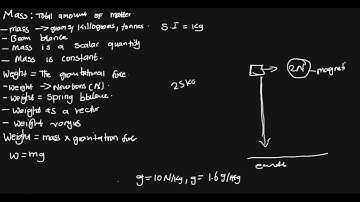 Mass: Total amount of matter
- mass → grams, killograms, tonnes. S.I = kg
- Beam blance
- Mass is a scalar quantity
- Mass is constant.
Weight = The gravitational force
- Weight → Newtons (N)
- Weight = Spring balance
- Weight is a vector
- Weight varys
Weight = mass x gravitation force
W = mg
25kg
2N
magnet
earth
g = 10N/kg, g = 1.6